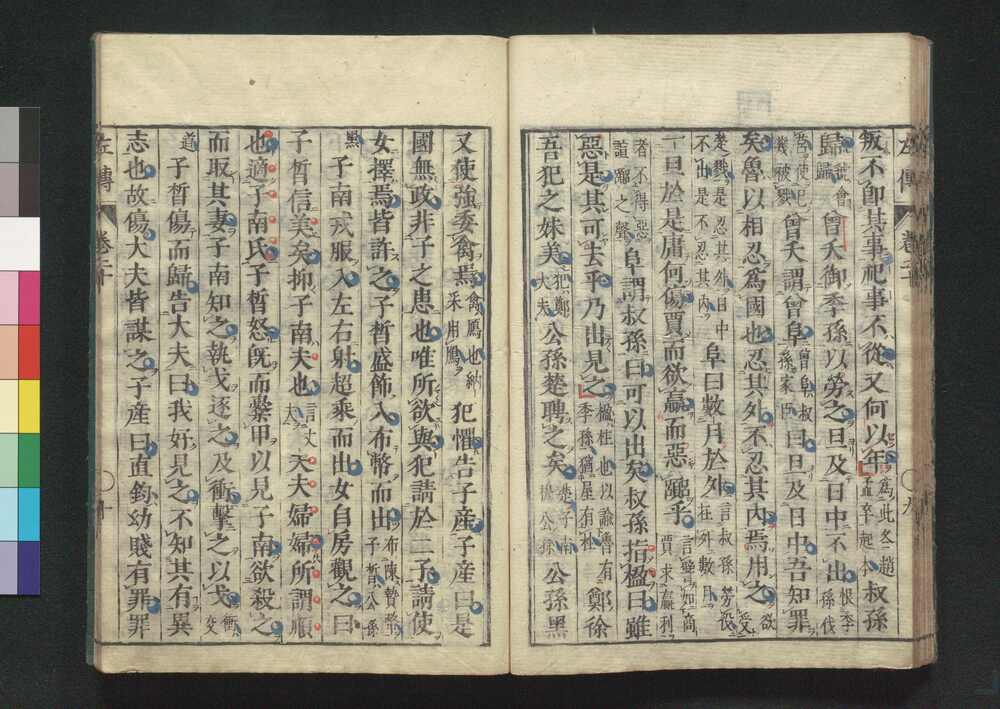 叛不即其事祀事不從又何以年爲此冬趙孟卒起本叔孫
歸虢會歸曾夭御季孫以勞之旦及日中不出恨季孫伐
莒使己幾被戮曾夭謂曾阜曾阜叔孫家臣曰旦及日中吾知罪
矣魯以相忍爲國也忍其外不忍其内焉用之欲受
楚戮是忍其外日中不出是不忍其内阜曰數月於外言叔孫勞役在外數月
一旦於是庸何傷賈而欲贏而惡嚻乎言譬如商賈求贏利
者不得惡諠嚻之聲阜謂叔孫曰可以出矣叔孫指楹曰雖
惡是其可去乎乃出見之楹柱也以諭魯有季孫猶屋有柱鄭徐
吾犯之妹美犯鄭大夫公孫楚聘之矣楚子南穆公孫公孫黑
左傳 卷二十 九
又使強委禽焉禽鴈也納采用鴈犯懼告子產子產曰是
國無政非子之患也唯所欲與犯請於二子請使
女擇焉皆許之子晳盛飾入布幣而出布陳贄幣子晳公孫
黑子南戎服入左右射超乘而出女自房觀之曰
子晳信美矣抑子南夫也言丈夫夫夫婦婦所謂順
也適子南氏子晳怒既而櫜甲以見子南欲殺之
而取其妻子南知之執戈逐之及衝擊之以戈衝交
道子晳傷而歸告大夫曰我好見之不知其有異
志也故傷大夫皆謀之子產曰直鈞幼賤有罪罪
左傳 卷二十 十